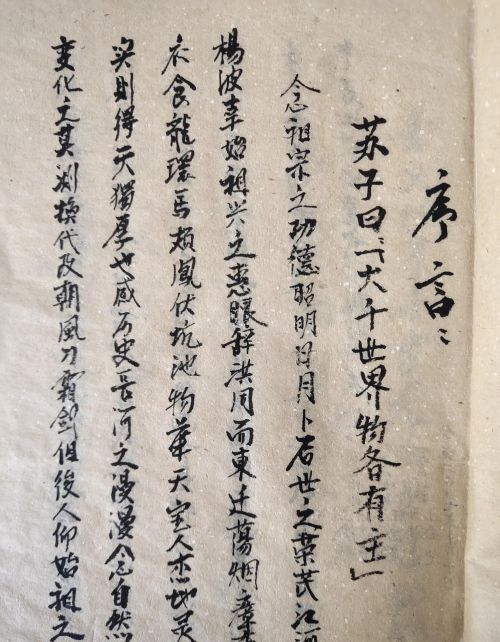 序言：
苏子曰：「大千世界物各有主」
念祖宗之功德昭明日月卜石世之荣茂江河
楊波幸始祖兴之惠眼辞洪同而東迁蕩烟
衣食龍環馬頰鳳伏坑池物華天宝人杰地灵
实则得天獨厚也感历史长河之漫漫念自然
变化之莫测换代改朝風刀霜劍但後人仰始祖之